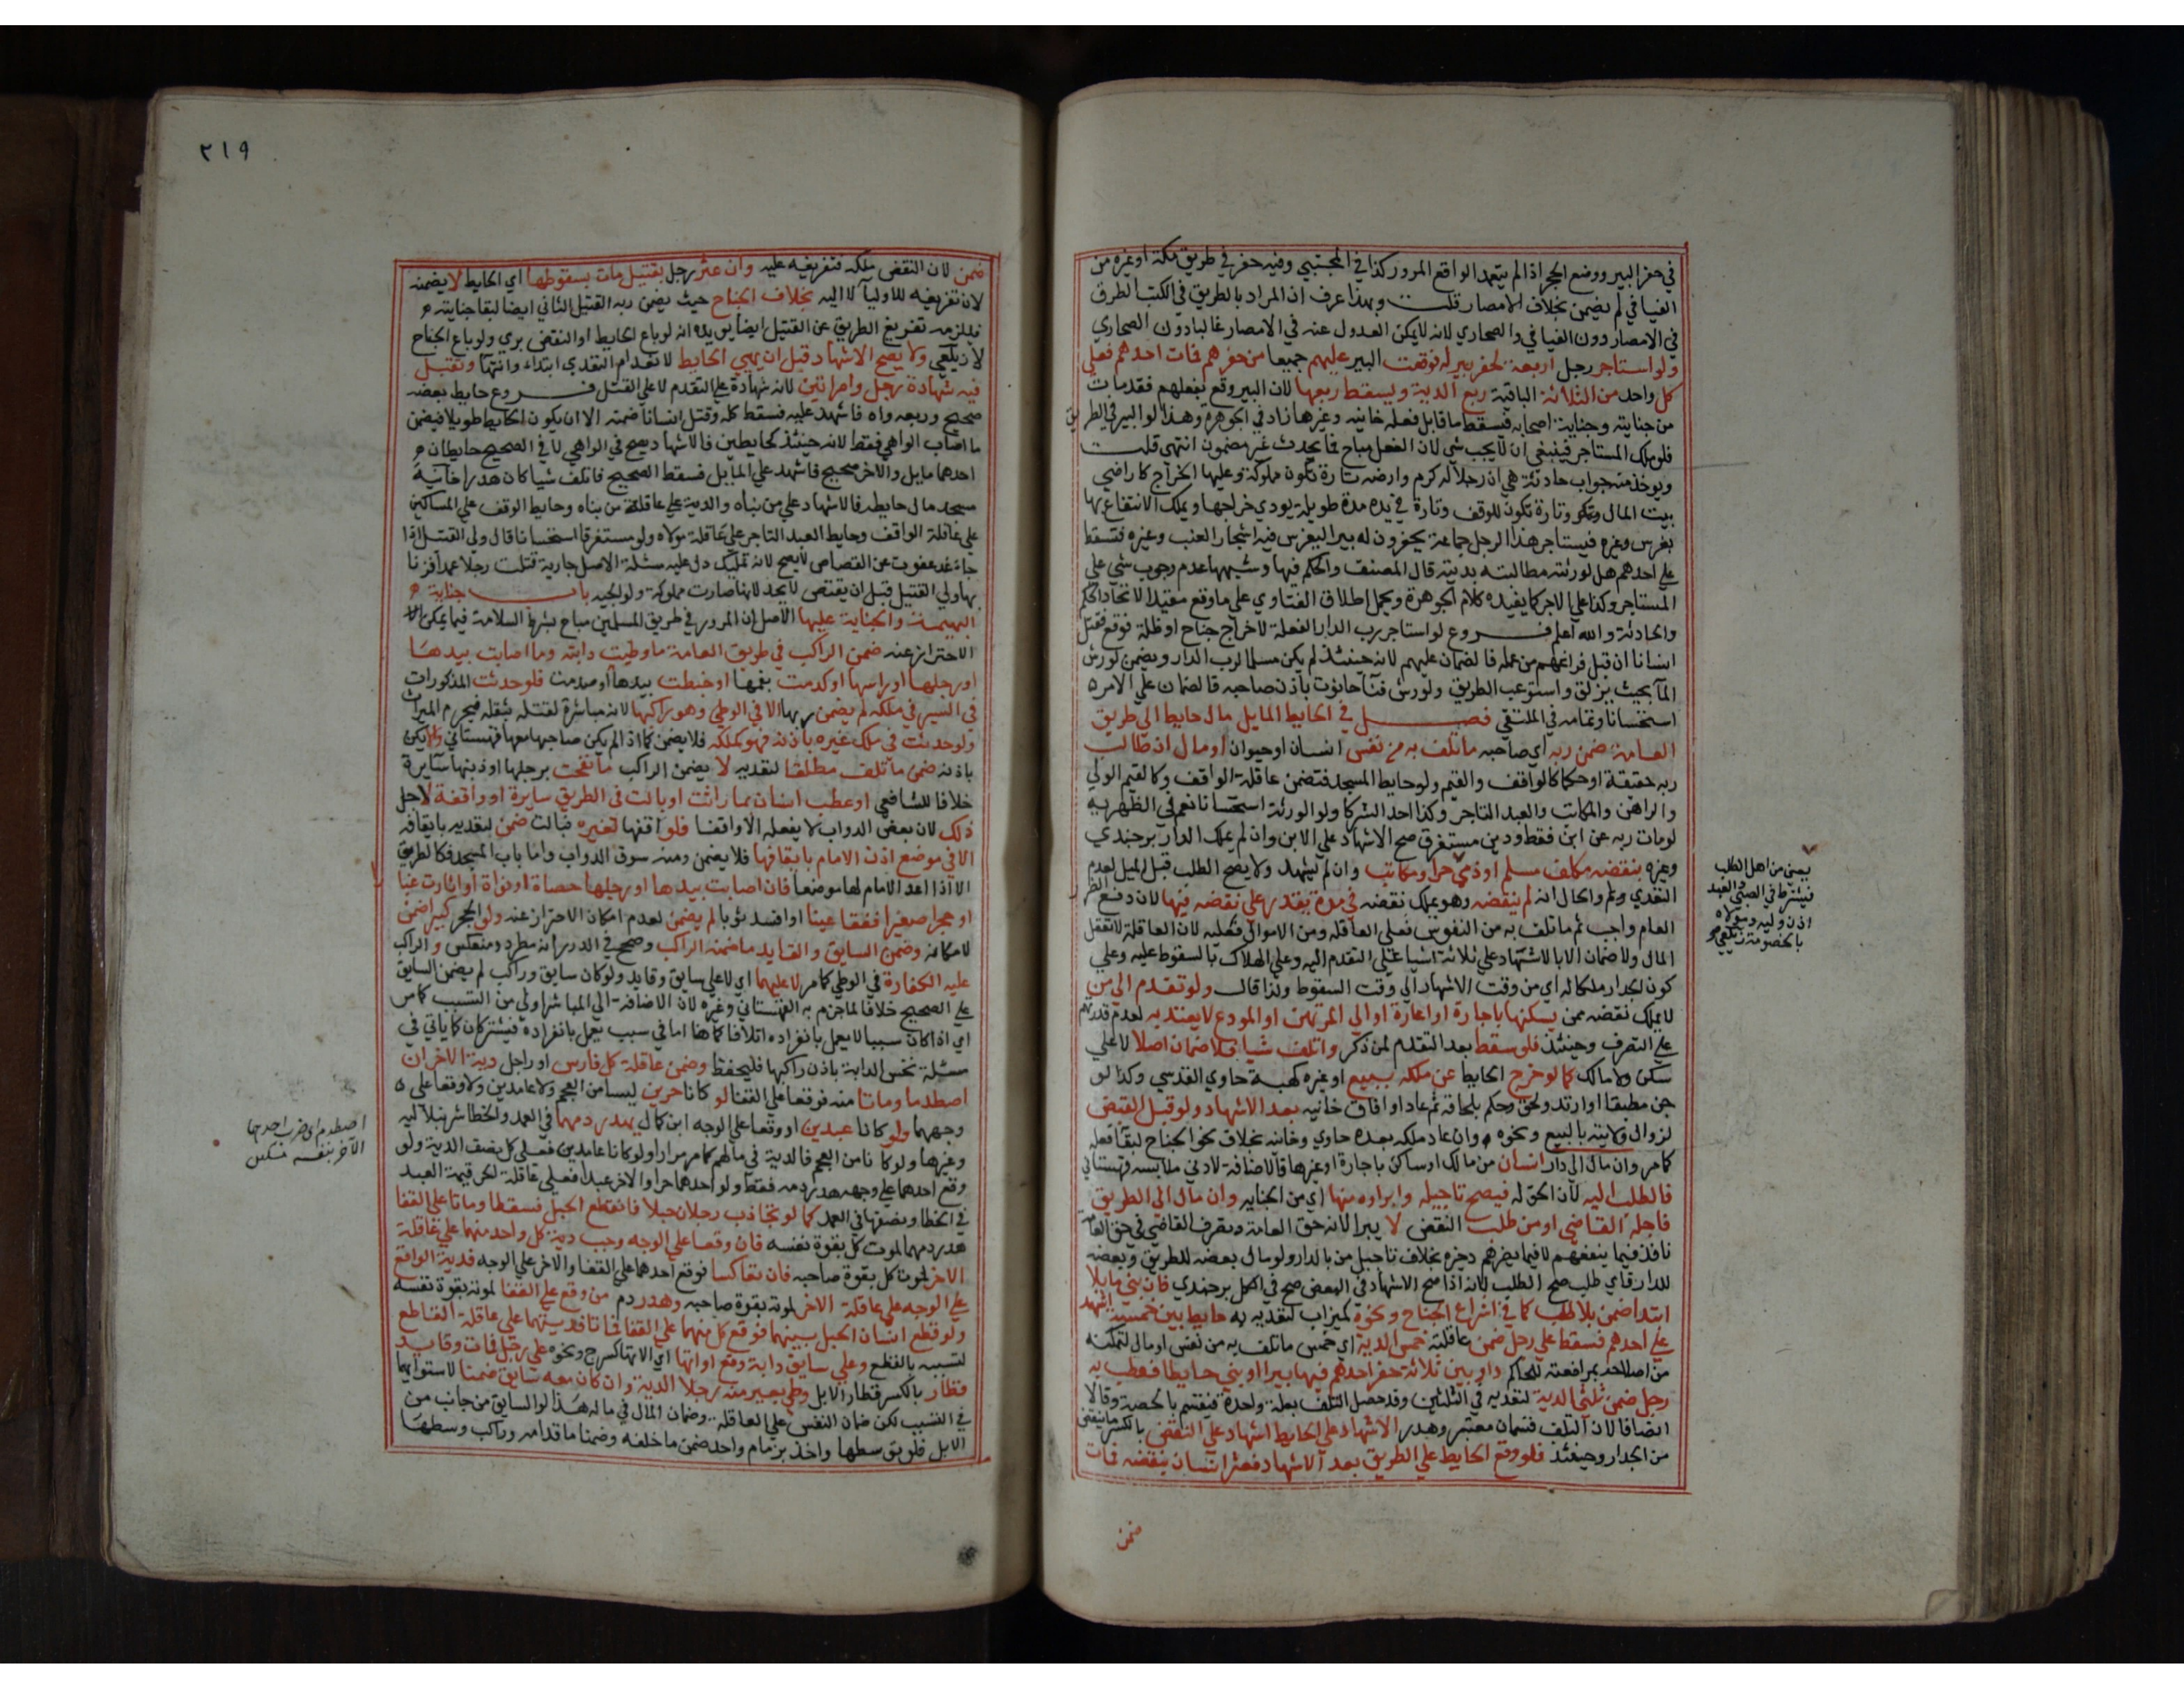 في حفر البير ووضع الحجر اذا لم يتعمد الواقع المرور كذا في المجتبي وفيه حفر في طريق مكة او غيره من
الفيافي لم يضمن بخلاف الامصار قلت وبهذا عرف ان المراد بالطريق في الكتب الطرق
في الامصار دون الفيافي والصحاري لانه لا يمكن العدول عنه في الامصار غالبا دون الصحاري
ولو استاجر رجل اربعة لحفر بير له فوقعت البير عليهم جميعا من حفرهم فمات احدهم فعلي
كل واحد من الثلاثة الباقية ربع الدية ويسقط ربعها لان البير وقع بفعلهم فقد مات
من جنايته وجناية اصحابه فيسقط ما قابل فعله خانيه وغيرها زاد في الجوهرة وهذا لو البير في الطريق
فلو بملك المستاجر فينبغي ان لا يجب شي لان الفعل مباح فما يحدث غير مضمون انتهي قلت
ويوخذ منه جواب حادثة هي ان رجلا له كرم وارضه تارة تكون مملوكة وعليها الخراج كاراضي
بيت المال وتارة تكون للوقف وتارة في يده مدة طويلة يودي خراجها ويملك الانتفاع بها
بغرس وغيره فيستاجر هذا الرجل جماعة يحفرون له بيرا ليغرس فيه اشجار العنب وغيره فتسقط
علي احدهم هل لورثته مطالبته بديته قال المصنف والحكم فيها وشبهها عدم وجوب شي علي
المستاجر وكذا علي الاجر كما يفيده كلام الجوهرة ويحمل اطلاق الفتاوي علي ما وقع مقيدا لاتحاد الحكم
والحادثة والله اعلم فروع لو استاجر رب الدار الفعلة لاخراج جناح او ظلة فوقع فقتل
انسانا ان قبل فراغهم من عمله فالضمان عليهم لانه حينئذ لم يكن مسلما لرب الدار ويضمن لو رش
المآ بحيث يزلق واستوعب الطريق ولو رش فنآ حانوت باذن صاحبه فالضمان علي الامر
استحسانا وتمامه في الملتقي فصل في الحايط المايل مال حايط الي طريق
العامة ضمن ربه اي صاحبه ما تلف به من نفس انسان او حيوان او مال ان طالب
ربه حقيقة او حكما كالواقف والقيم ولو حايط المسجد فتضمن عاقلة الواقف وكالقيم الولي
والراهن والمكاتب والعبد التاجر وكذا احد الشركا ولو الورثة استحسانا نعم في الظهريه
لو مات ربه عن ابن فقط ودين مستغرق صح الاشهاد علي الابن وان لم يملك الدار برجندي
وغيره بنقضه مكلف مسلم او ذمي حر او مكاتب وان لم يشهد ولا يصح الطلب قبل الميل لعدم
التعدي والحال انه لم ينقضه وهو يملك نقضه في مدة يقدر علي نقضه فيها لان دفع الضرر
العام واجب ثم ما تلف به من النفوس فعلي العاقله ومن الاموال فعليه لان العاقلة لا تعقل
المال ولا ضمان الا بالاشهاد علي ثلاثة اشيا علي التقدم اليه وعلي الهلاك بالسقوط عليه وعلي
كون الجدار ملكا له اي من وقت الاشهاد الي وقت السقوط ولذا قال ولو تقدم الي من
لا يملك نقضه ممن يسكنها باجارة او اعارة او الي المرتهن او المودع لا يعتد به لعدم قدرتهم
علي التصرف وحينئذ فلو سقط بعد التقدم لمن ذكر واتلف شيا فلا ضمان اصلا لا علي
ساكن ولا مالك كما لو خرج الحايط عن ملكه ببيع او غيره كهبة حاوي القدسي وكذا لو
جن مطبقا او ارتد ولحق وحكم بلحاقه ثم عاد او افاق خانيه بعد الاشهاد ولو قبل القبض
لزوال ولايته بالبيع ونحوه وان عاد ملكه بعده حاوي وخانيه بخلاف نحو الجناح لبقآ فعله
كما مر وان مال الي دار انسان من مالك او ساكن باجارة او غيرها فالاضافة لادني ملابسه قهستاني
فالطلب اليه لان الحق له فيصح تاجيله وابراوه منها اي من الجنايه وان مال الي الطريق
فاجله القاضي او من طلب النقض لا يبرا لانه حق العامة وتصرف القاضي في حق العامة
نافذ فيما ينفعهم لا فيما يضرهم ذخيره بخلاف تاجيل من بالدار ولو مال بعضه للطريق وبعضه
للدار فاي طلب صح الطلب لانه اذا صح الاشهاد في البعض صح في الكل برجندي فان بني مايلا
ابتدا ضمن بلا طلب كما في اشراع الجناح ونحوه كميزاب لتعديه به حايط بين خمسة اشهد
علي احدهم فسقط علي رجل ضمن عاقلته خمس الدية اي خمس ما تلف به من نفس او مال لتمكنه
من اصلاحه بمرافعته للحاكم دار بين ثلاثة حفر احدهم فيها بيرا او بني حايطا فعطب به
رجل ضمن ثلثي الدية لتعديه في الثلثين وقد حصل التلف بعلة واحدة فيقسم بالحصة وقالا
انصافا لان التلف قسمان معتبر وهدر الاشهاد علي الحايط اشهاد علي النقض بالكسر ما ينقض
من الجدار وحينئذ فلو وقع الحايط علي الطريق بعد الاشهاد فعثر انسان بنقضه فمات
ضمن
يعني من اهل الطلب
فيشترط في الصبي والعبد
اذن وليه ومولاه
بالخصومة زيلعي
٢١٩
ضمن لان النقض ملكه فتفريغه عليه وان عثر رجل بقتيل مات بسقوطها اي الحايط لا يضمنه
لان تفريغه للاوليآ لا اليه بخلاف الجناح حيث يضمن ربه القتيل الثاني ايضا لبقا جنايته
فيلزمه تفريغ الطريق عن القتيل ايضا يويده انه لو باع الحايط او النقض بري ولو باع الجناح
لا زيلعي ولا يصح الاشهاد قبل ان يهي الحايط لانعدام التعدي ابتداء وانتها وتقبل
فيه شهادة رجل وامراتين لانه شهادة علي التقدم لا علي القتل فروع حايط بعضه
صحيح وبعضه واه فاشهد عليه فسقط كله وقتل انسانا ضمنه الا ان يكون الحايط طويلا فيضمن
ما اصاب الواهي فقط لانه حينئذ كحايطين فالاشهاد يصح في الواهي لا في الصحيح حايطان
احدهما مايل والاخر صحيح فاشهد علي المايل فسقط الصحيح فاتلف شيا كان هدرا خانية
مسجد مال حايطه فالاشهاد علي من بناه والدية علي عاقلة من بناه وحايط الوقف علي المساكين
علي عاقلة الواقف وحايط العبد التاجر علي عاقلة مولاه ولو مستغرقا استحسانا قال ولي القتيل اذا
جا غد عفوت عن القصاص لا يصح لانه تمليك دل عليه مسئلة الاصل جارية قتلت رجلا عمدا فزنا
بها ولي القتيل قبل ان يقتص لا يحد لانها صارت مملوكة ولوالجيه باب جناية
البهيمة والجناية عليها الاصل ان المرور في طريق المسلمين مباح بشرط السلامة فيما يمكن
الاحتراز عنه ضمن الراكب في طريق العامة ما وطيت دابته وما اصابت بيدها
او رجلها او راسها او كدمت بفمها او خبطت بيدها او صدمت فلو حدثت المذكورات
في السير في ملكه لم يضمن ربها الا في الوطي وهو راكبها لانه مباشرة لقتله بثقله فيحرم الميراث
ولو حدثت في ملك غيره باذنه فهو كملكه فلا يضمن كما اذا لم يكن صاحبها معها قهستاني والا يكن
باذنه ضمن ما تلف مطلقا لتعديه لا يضمن الراكب ما نفحت برجلها او ذنبها سآيرة
خلافا للشافعي او عطب انسان بما راثت او بالت في الطريق سايرة او واقفة لاجل
ذلك لان بعض الدواب لا يفعله الا واقفا فلو اوقفها لغيره فبالت ضمن لتعديه بايقافه
الا في موضع اذن الامام بايقافها فلا يضمن ومنه سوق الدواب واما باب المسجد فكالطريق
الا اذا اعد الامام لها موضعا فان اصابت بيدها او رجلها حصاة او نواة او اثارت غبارا
او حجرا صغيرا ففقا عينا او افسد ثوبا لم يضمن لعدم امكان الاحتراز عنه ولو الحجر كبيرا ضمن
لامكانه وضمن السايق والقايد ما ضمنه الراكب وصحح في الدرر انه مطرد ومنعكس والراكب
عليه الكفارة في الوطي كما مر لا عليهما اي لا علي سايق وقايد ولو كان سايق وراكب لم يضمن السايق
علي الصحيح خلافا لما جزم به القهستاني وغيره لان الاضافة الي المباشر اولي من التسبب كما مر
اي اذا كان سببا لا يعمل بانفراده اتلافا كما هنا اما في سبب يعمل بانفراده فيشتركان كما ياتي في
مسئلة نخس الدابة باذن راكبها فليحفظ وضمن عاقلة كل فارس او راجل دية الاخر ان
اصطدما وماتا منه فوقعا علي القفا لو كانا حرين ليسا من العجم ولا عامدين ولا وقعا علي
وجههما ولو كانا عبدين او وقعا علي الوجه ابن كمال يهدر دمهما في العمد والخطا شرنبلاليه
وغيرها ولو كانا من العجم فالدية في مالهم كما مر مرارا ولو كانا عامدين فعلي كل نصف الدية ولو
وقع احدهما علي وجهه هدر دمه فقط ولو احدهما حرا والاخر عبدا فعلي عاقلة الحر قيمة العبد
في الخطا ونصفها في العمد كما لو تجاذب رجلان حبلا فانقطع الحبل فسقطا وماتا علي القفا
هدر دمهما لموت كل بقوة نفسه فان وقعا علي الوجه وجب دية كل واحد منهما علي عاقلة
الاخر لموت كل بقوة صاحبه فان تعاكسا فوقع احدهما علي القفا والاخر علي الوجه فدية الواقع
علي الوجه علي عاقلة الاخر لموته بقوة صاحبه وهدر دم من وقع علي القفا لموته بقوة نفسه
ولو قطع انسان الحبل بينهما فوقع كل منهما علي القفا فماتا فديتهما علي عاقلة القاطع
لتسببه بالقطع وعلي سايق دابة وقع اداتها اي الاتها كسرج ونحوه علي رجل فمات وقايد
قطار بالكسر قطار الابل وطي بعير منه رجلا الدية وان كان معه سايق ضمنا لاستوايهما
في التسبب لكن ضمان النفس علي العاقله وضمان المال في ماله هذا لو السايق من جانب من
الابل فلو توسطها واخذ بزمام واحد ضمن ما خلفه وضمنا ما قدامه وراكب وسطها
اصطدم اي ضرب احدهما
الآخر بنفسه مسكين